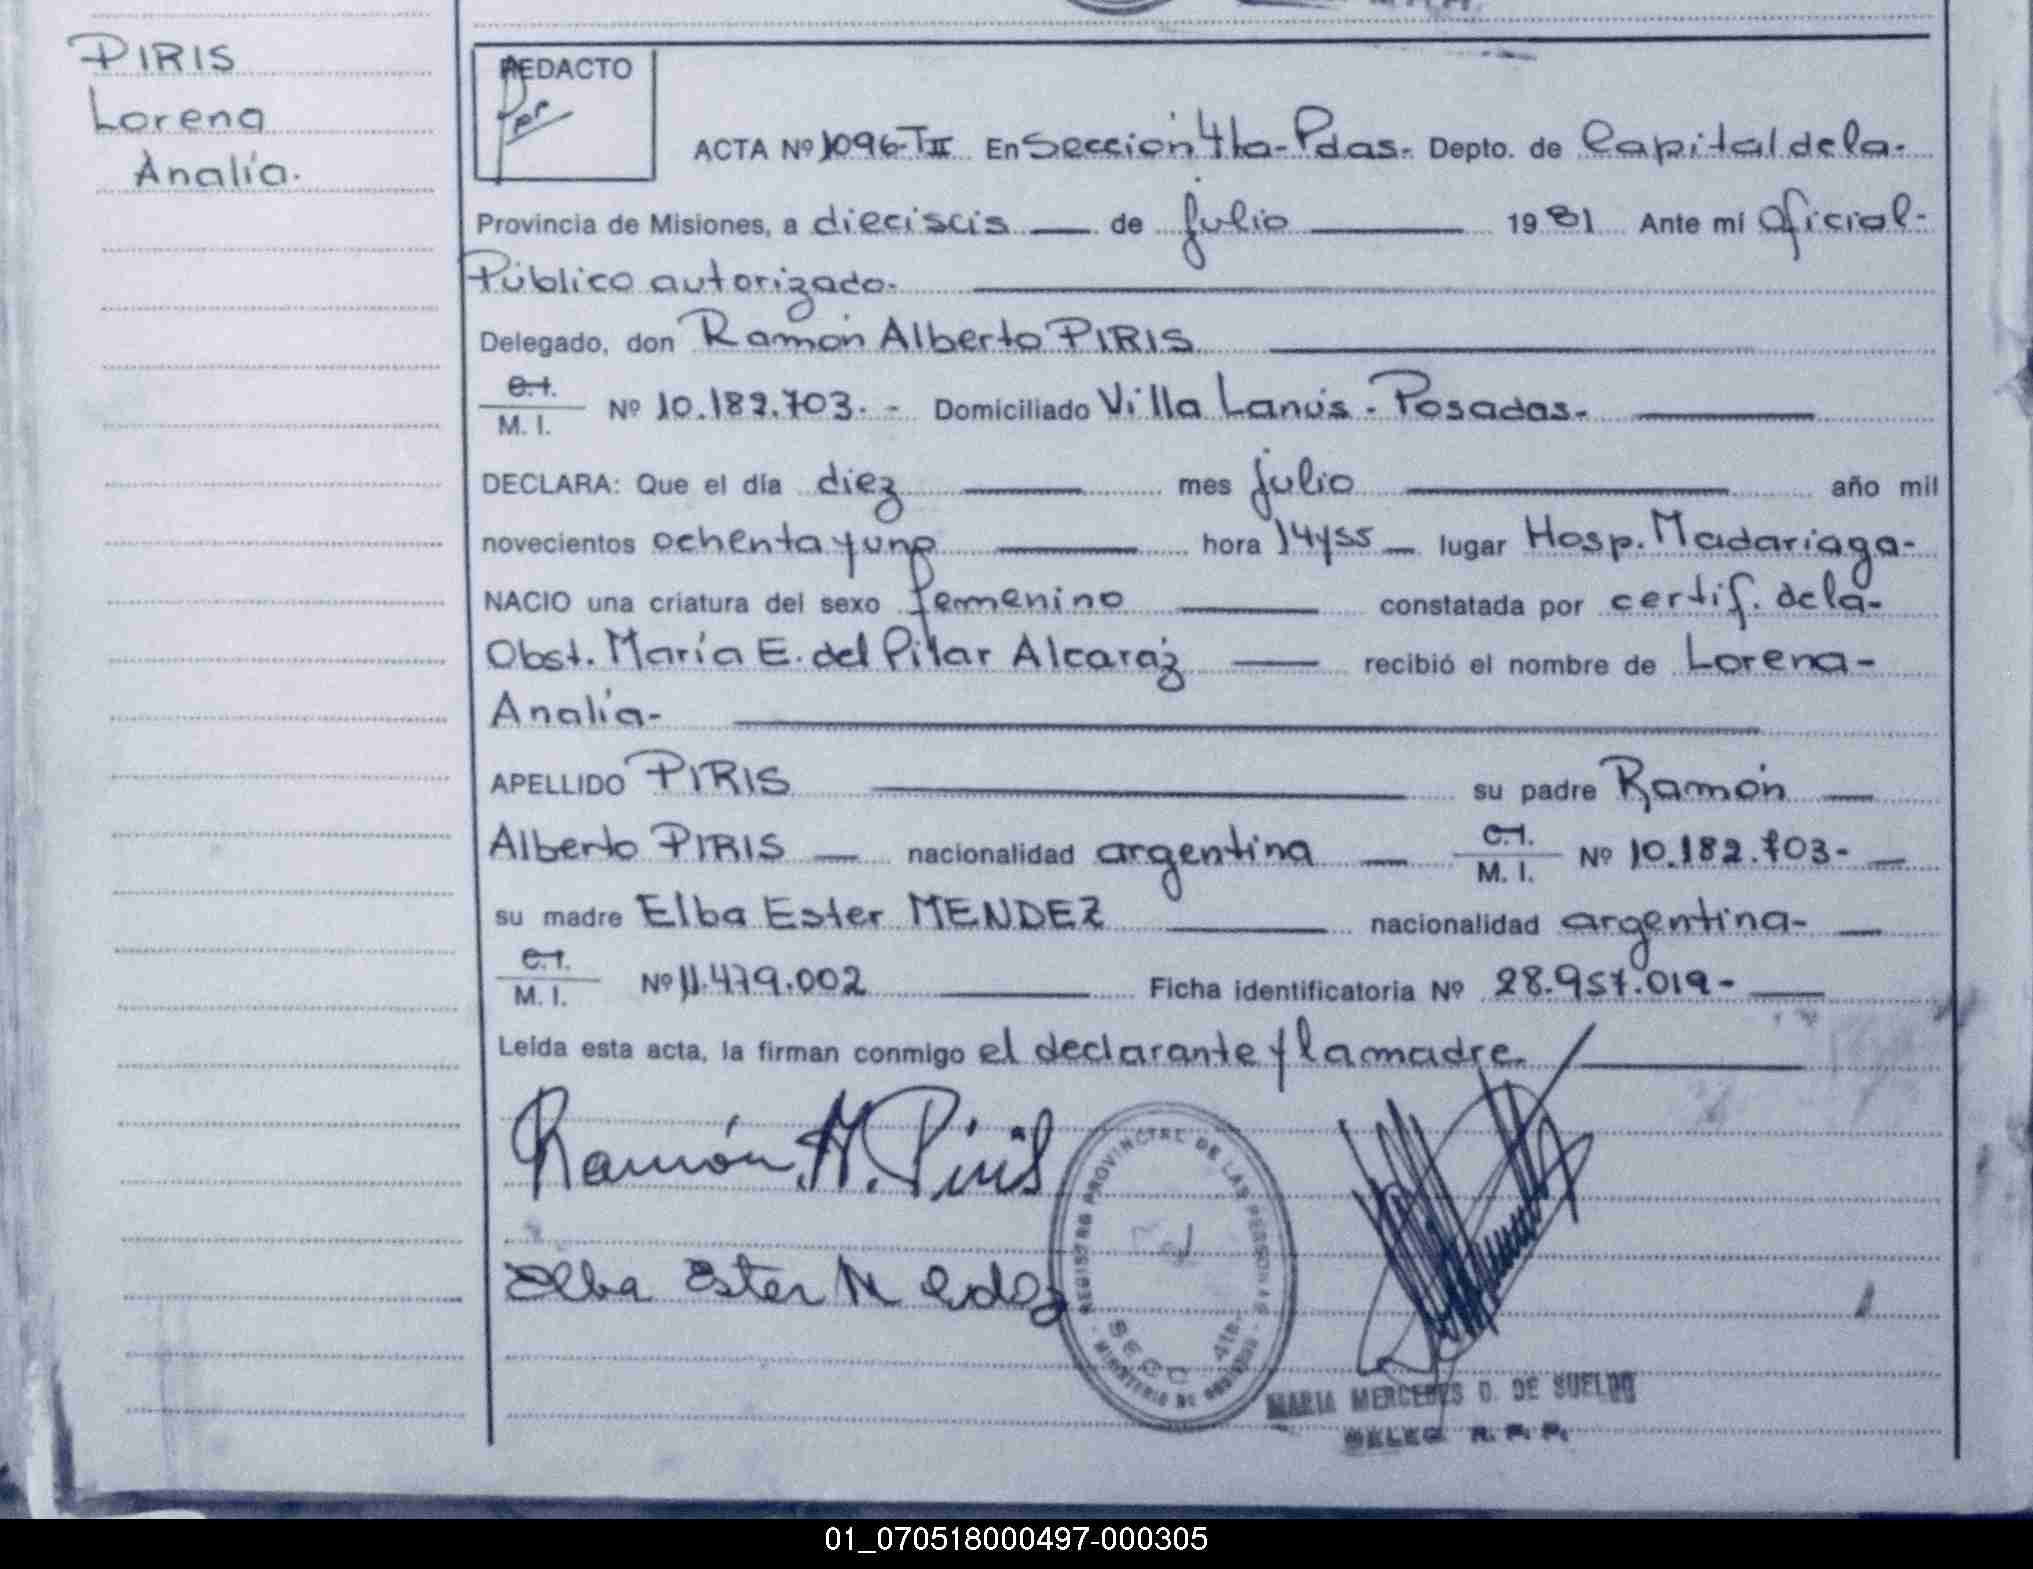 PIRIS
Lorena
Analía.
REDACTO
ACTA Nº 1096-TII En Sección 4ta-Pdas- Depto. de Capital de la-
Provincia de Misiones, a dieciseis de julio 1981 Ante mí Oficial-
Público autorizado-
Delegado, don Ramón Alberto PIRIS
C.I.
M. I. Nº 10.182.703.- Domiciliado Villa Lanús - Posadas-
DECLARA: Que el día diez mes julio año mil
novecientos ochenta y uno hora 14y55 lugar Hosp. Madariaga-
NACIO una criatura del sexo femenino constatada por certif. de la-
Obst. María E. del Pilar Alcaráz recibió el nombre de Lorena-
Analía-
APELLIDO PIRIS su padre Ramón
Alberto PIRIS nacionalidad argentina C.I.
M. I. Nº 10.182.703-
su madre Elba Ester MENDEZ nacionalidad argentina-
C.I.
M. I. Nº 11.479.002 Ficha identificatoria Nº 28.957.019-
Leída esta acta, la firman conmigo el declarante y la madre.
Ramón A. Piris
Elba Ester Mendez
REGISTRO PROVINCIAL DE LAS PERSONAS
SECC 4ta-
MINISTERIO DE GOBIERNO
MARIA MERCEDES D. DE SUELDO
DELEG. R. P. P.
01_070518000497-000305